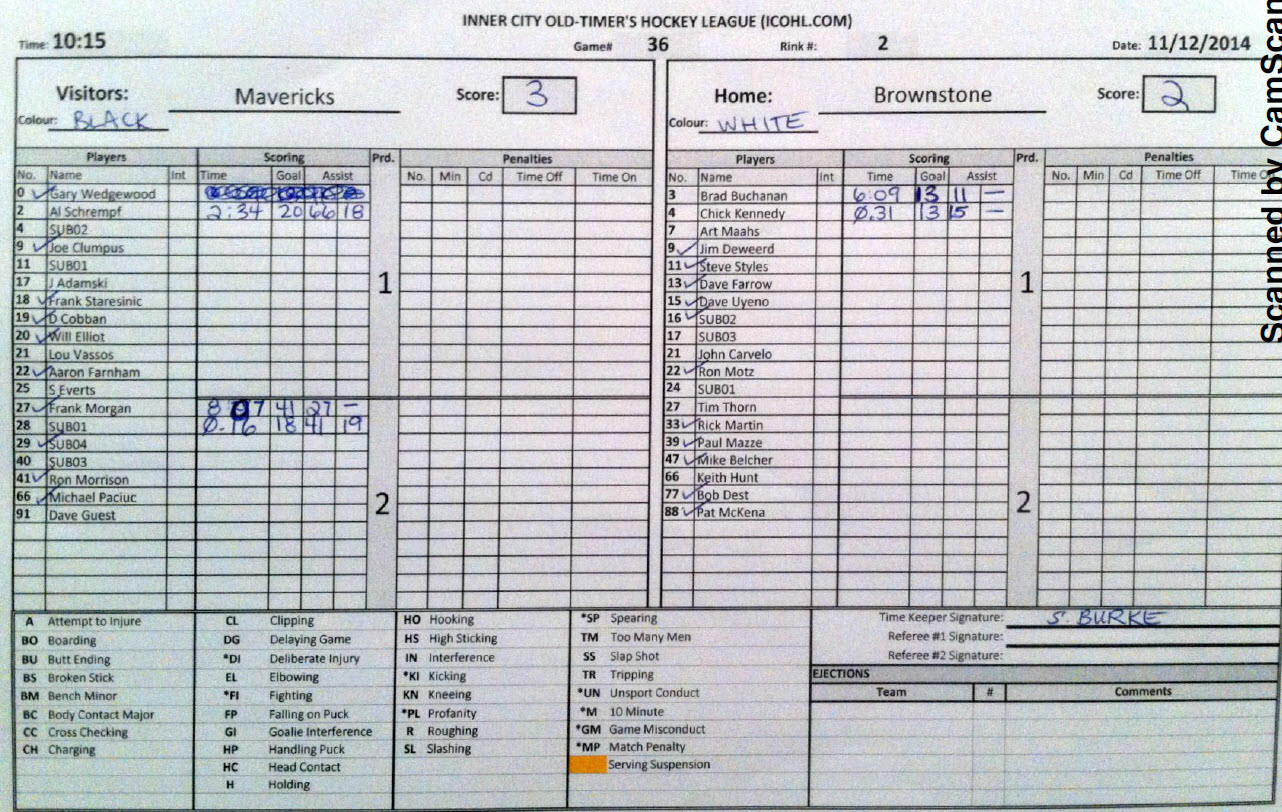 INNER CITY OLD-TIMER'S HOCKEY LEAGUE (ICOHL.COM)
Time: 10:15 Game# 36 Rink #: 2 Date: 11/12/2014
Visitors: Mavericks Score: 3 Home: Brownstone Score: 2
Colour: BLACK Colour: WHITE
Players Scoring Prd. Penalties Players Scoring Prd. Penalties
No. Name Int Time Goal Assist No. Min Cd Time Off Time On No. Name Int Time Goal Assist No. Min Cd Time Off Time O
0 Gary Wedgewood 3 Brad Buchanan 6:09 13 11 —
2 Al Schrempf 2:34 20 66 18 4 Chick Kennedy 0.31 13 15 —
4 SUB02 7 Art Maahs
9 Joe Clumpus 9 Jim Deweerd
11 SUB01 11 Steve Styles
17 J Adamski 1 13 Dave Farrow 1
18 Frank Staresinic 15 Dave Uyeno
19 D Cobban 16 SUB02
20 Will Elliot 17 SUB03
21 Lou Vassos 21 John Carvelo
22 Aaron Farnham 22 Ron Motz
25 S Everts 24 SUB01
27 Frank Morgan 8 07 41 27 — 27 Tim Thorn
28 SUB01 0.16 18 41 19 33 Rick Martin
29 SUB04 39 Paul Mazze
40 SUB03 47 Mike Belcher
41 Ron Morrison 66 Keith Hunt
66 Michael Paciuc 2 77 Bob Dest 2
91 Dave Guest 88 Pat McKena
A Attempt to Injure CL Clipping HO Hooking *SP Spearing Time Keeper Signature: S. BURKE
BO Boarding DG Delaying Game HS High Sticking TM Too Many Men Referee #1 Signature:
BU Butt Ending *DI Deliberate Injury IN Interference SS Slap Shot Referee #2 Signature:
BS Broken Stick EL Elbowing *KI Kicking TR Tripping EJECTIONS
BM Bench Minor *FI Fighting KN Kneeing *UN Unsport Conduct Team # Comments
BC Body Contact Major FP Falling on Puck *PL Profanity *M 10 Minute
CC Cross Checking GI Goalie Interference R Roughing *GM Game Misconduct
CH Charging HP Handling Puck SL Slashing *MP Match Penalty
HC Head Contact Serving Suspension
H Holding
Scanned by CamScan